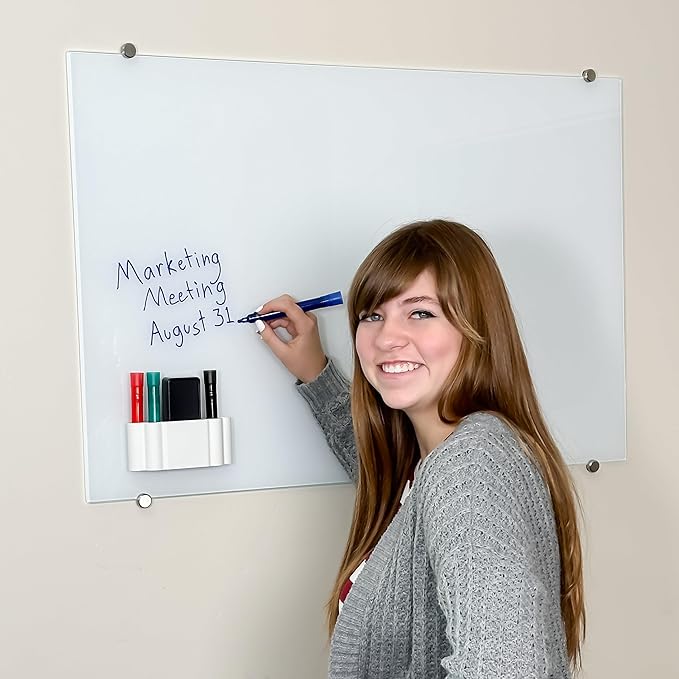 Marketing
Meeting
August 31